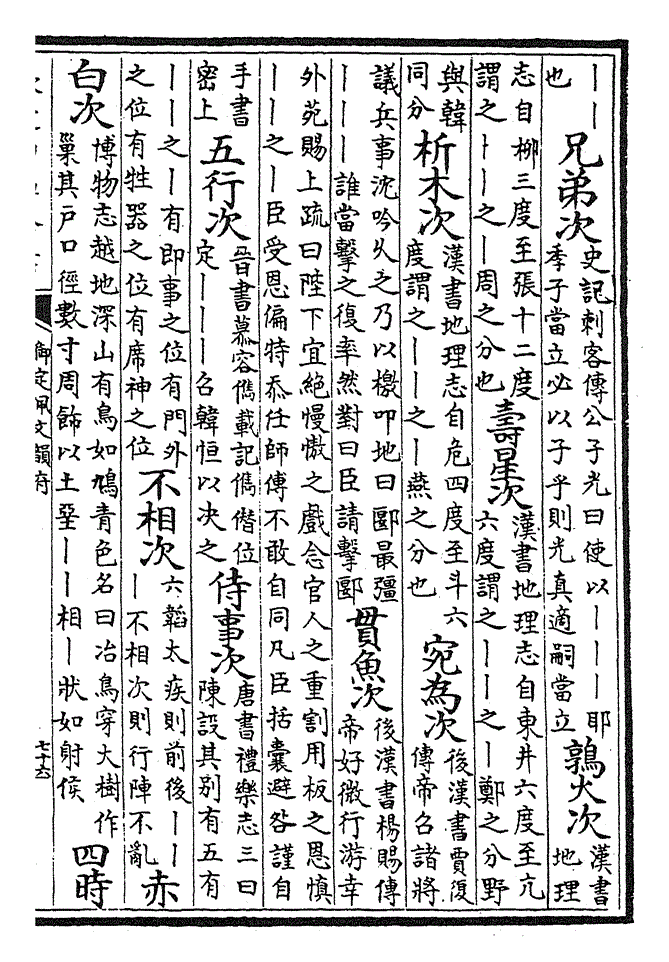 ｜｜｜
也
兄弟次
史記刺客傳公子光曰使以｜｜｜耶
季子當立必以子乎則光真適嗣當立
鶉火次
漢書
地理
志自柳三度至張十二度
謂之｜｜之｜周之分也
壽星次
漢書地理志自東井六度至亢
六度謂之｜｜之｜鄭之分野
與韓
同分
析木次
漢書地理志自危四度至斗六
度謂之｜｜之｜燕之分也
宛為次
後漢書賈復
傳帝召諸將
議兵事沈吟乆之乃以檄叩地曰郾最彊
｜｜｜誰當擊之復率然對曰臣請擊郾
貫魚次
後漢書楊賜傳
帝好微行游幸
外苑賜上疏曰陛下宜絕慢慠之戲念官人之重割用板之恩慎
｜｜之｜臣受恩偏特忝任師傅不敢自同凡臣括囊避咎謹自
手書
密上
五行次
晉書慕容儁載記儁僭位
定｜｜｜召韓恒以决之
侍事次
唐書禮樂志三曰
陳設其别有五有
｜｜之｜有即事之位有門外
之位有牲器之位有席神之位
不相次
六韜太疾則前後｜｜
｜不相次則行陣不亂
赤
白次
博物志越地深山有鳥如鳩青色名曰冶鳥穿大樹作
巢其戶口徑數寸周飾以土堊｜｜相｜狀如射侯
四時
御定佩文韻府
七十六